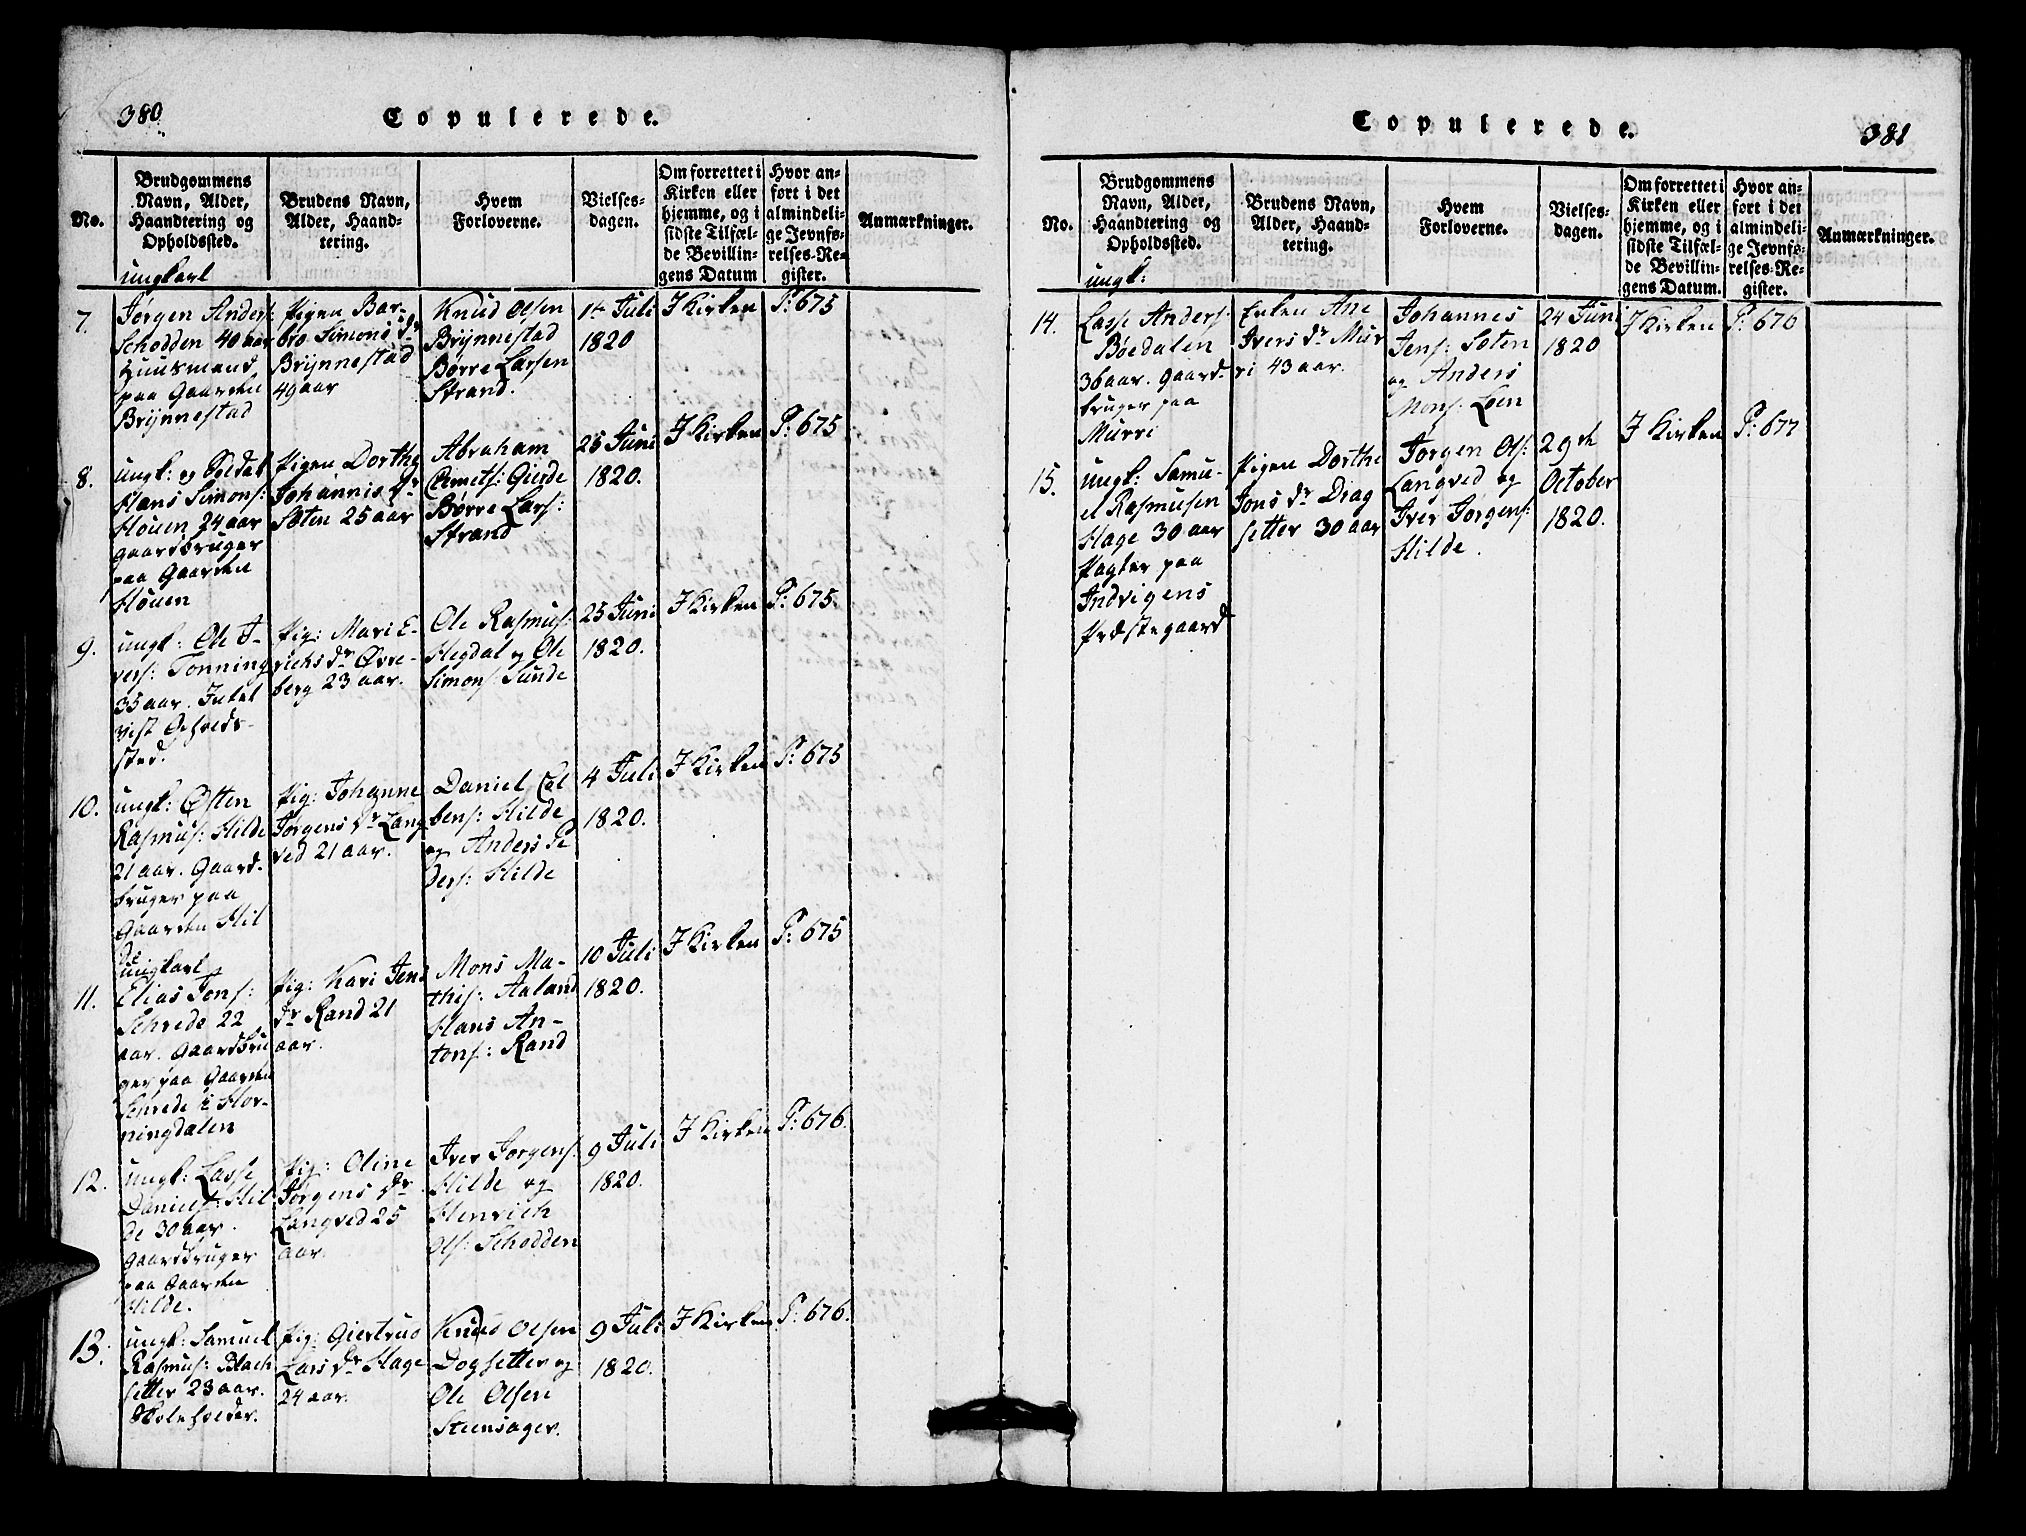 380.
Copulerede.
No.
Brudgommens
Navn, Alder,
Haandtering og
Opholdssted.
Brudens Navn,
Alder, Haand-
tering.
Hvem
Forloverne.
Vielses-
dagen.
Om forrettet i
Kirken eller
hjemme, og i
sidste Tilfæl-
de Bevillin-
gens Datum
Hvor an-
ført i det
almindeli-
ge Jevnfø-
relses-Re-
gister.
Anmærkninger.
7.
ungkarl
Jørgen Anders:
Schodden 40 aar
Huusmand
paa Gaarden
Brÿnnestad
Pigen Bar-
bro Simons Dr
Brÿnnestad
49 aar
Knud Olsen
Brÿnnestad
Børre Larsen
Strand.
14 Juli
1820
I Kirken
P: 675
8.
ungk: og Soldat
Hans Simons:
Høuen 24 aar
Gaardbruger
paa Gaarden
Høuen
Pigen Dorthe
Johannis Dr
Soten 25 aar
Abraham
Gierde
Børre Lars:
Strand
25 Juni
1820.
I Kirken
P: 675
9.
ungk: Ole I-
vers: Tonning
35 aar. Intet
vist Opholds-
sted.
Pig: Mari E-
richs Dr Øvre-
berg 23 aar.
Ole Rasmus:
Hegdal og Ole
Simons: Sunde
25 Juni
1820.
I Kirken
P: 675.
10.
ungk: Østen
Rasmus: Hilde
21 aar. Gaard-
bruger paa
Gaarden Hil
de
Pig: Johanne
Jørgens Dr Lang
ved 21 aar.
Daniel Col
bens: Hilde
og Anders Pe
ders: Hilde
4 Juli
1820.
I Kirken
P: 675
11.
ungkarl
Elias Jons:
Schrede 22
aar. Gaardbru
ger paa Gaarden
Schrede i Hor-
ningdalen
Pig: Kari Jens
Dr Rand 21
aar.
Mons Ma-
this: Aaland
Hans An-
tons: Rand
10 Juli
1820.
I Kirken
P: 675
12.
ungk: Lasse
Daniels: Hil
de 30 aar.
Gaardbruger
paa Gaarden
Hilde.
Pig: Oline
Jørgens Dr
Langved 25
aar.
Iver Jørgens:
Hilde og
Henrich
Ols: Schodden
9 Juli
1820.
I Kirken
P: 676.
13.
ungk: Samuel
Rasmus: Blach
setter 23 aar.
Skoleholder.
Pig: Giertrud
Lars Dr Hage
24 aar.
Knud Olsen
Dogsetter og
Ole Olsen
Steensager.
9 Juli
1820.
I Kirken
P: 676.
Copulerede.
381
No.
Brudgommens
Navn, Alder,
Haandtering og
Opholdssted.
Brudens Navn,
Alder, Haand-
tering.
Hvem
Forloverne.
Vielses-
dagen.
Om forrettet i
Kirken eller
hjemme, og i
sidste Tilfæl-
de Bevillin-
gens Datum.
Hvor an-
ført i det
almindeli-
ge Jevnfø-
relses-Re-
gister.
Anmærkninger.
14.
ungk:
Lasse Anders:
Bøedalen
36 aar. Gaard-
bruger paa
Murri
Enken Ane
Ivers Dr Mur
ri 43 aar.
Johannes
Jens: Soten
og Anders
Mons: Loen
24 Juni
1820
I Kirken
P: 676
15.
ungk: Samu-
el Rasmusen
Hage 30 aar
Pagter paa
Indvigens
Præstegaard
Pigen Dorthe
Jons Dr Drag
setter 30 aar
Jørgen Ols:
Langved og
Iver Jørgens:
Hilde.
29de
October
1820.
I Kirken
P: 677